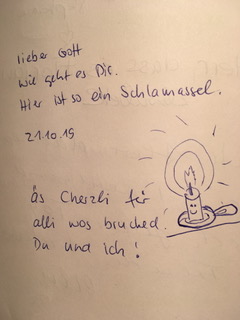 lieber Gott
wie geht es Dir.
Hier ist so ein Schlamassel.
21.10.19
äs Cherzli für
alli wos bruched!
Du und ich!